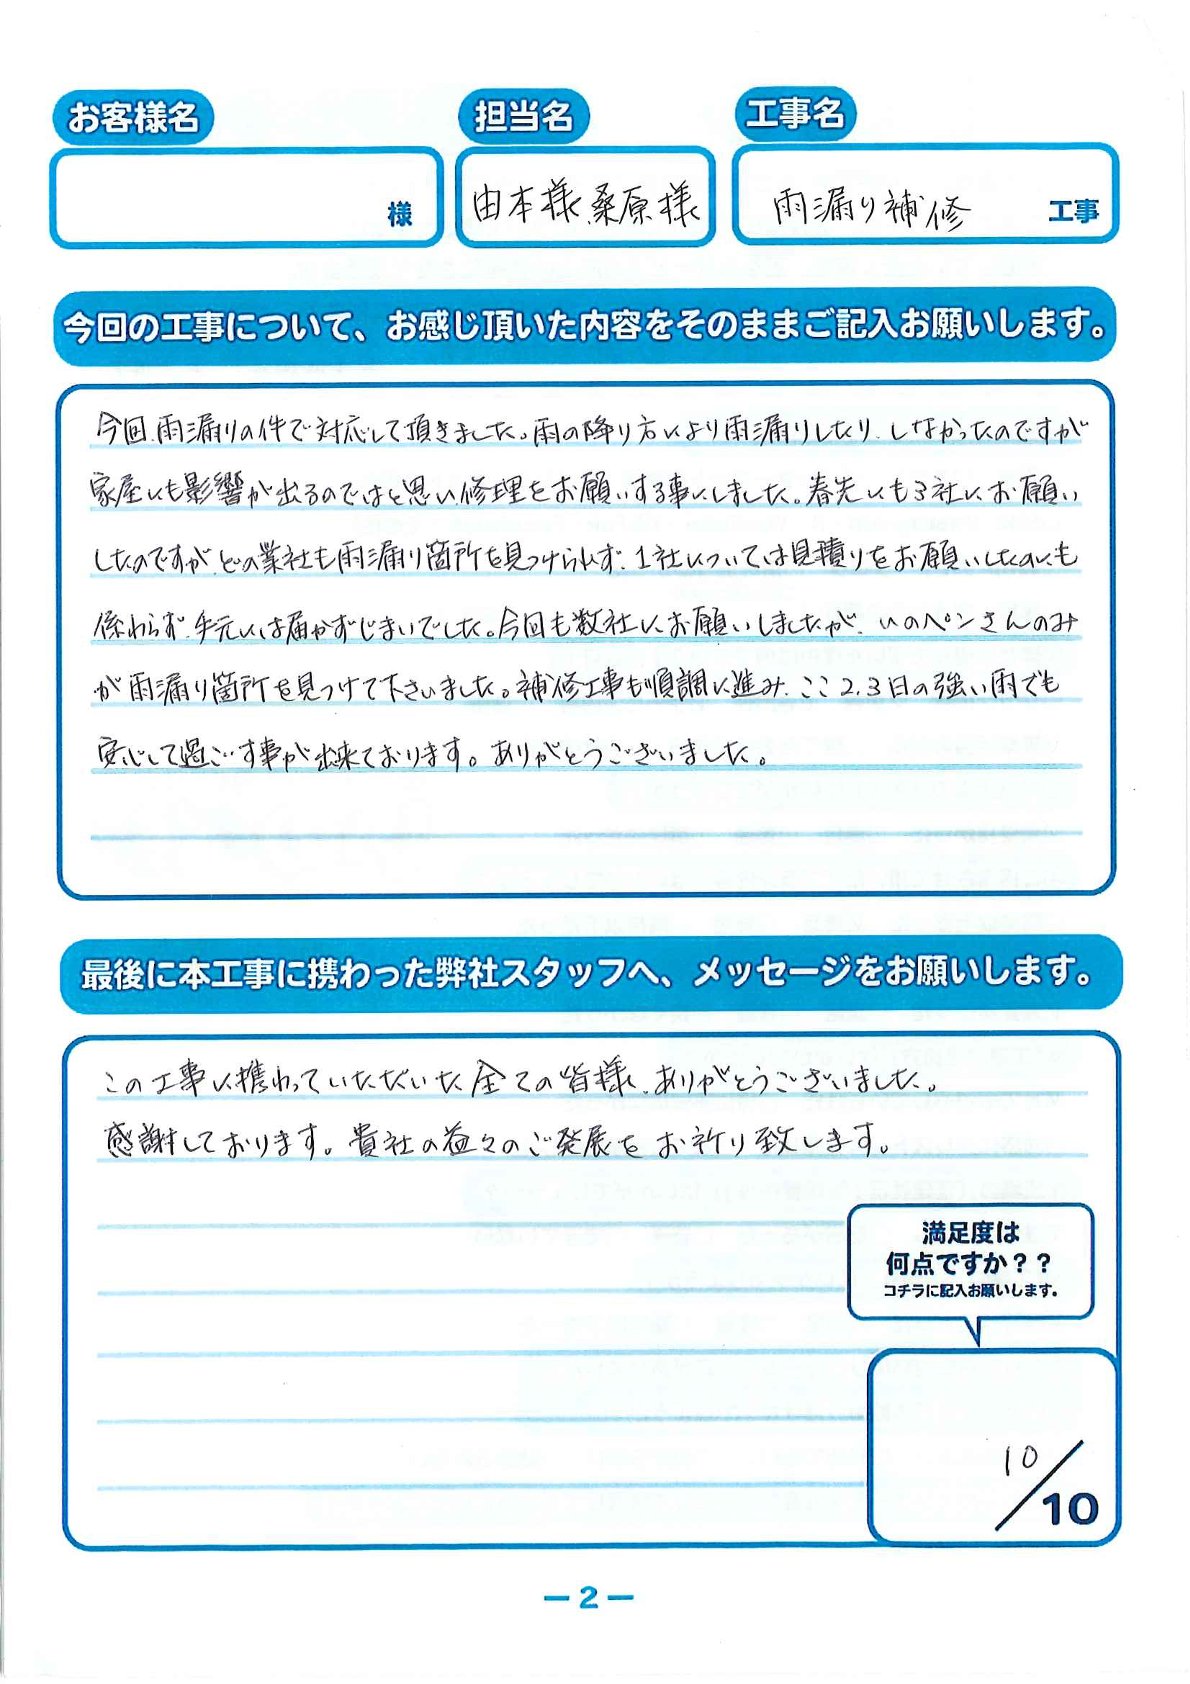 お客様名
担当名
工事名
様
由本様、桑原様
雨漏り補修
工事
今回の工事について、お感じ頂いた内容をそのままご記入お願いします。
今回、雨漏りの件で対応して頂きました。雨の降り方により雨漏りしたり、しなかったのですが
家屋にも影響が出るのではと思い、修理をお願いする事にしました。春先にも3社にお願い
したのですが、どの業社も雨漏り箇所を見つけられず、1社については見積りをお願いしたのにも
係わらず、手元には届かずじまいでした。今回も数社にお願いしましたが、いのペンさんのみ
が雨漏り箇所を見つけて下さいました。補修工事も順調に進み、ここ2、3日の強い雨でも
安心して過ごす事が出来ております。ありがとうございました。
最後に本工事に携わった弊社スタッフへ、メッセージをお願いします。
この工事に携わっていただいた全ての皆様、ありがとうございました。
感謝しております。貴社の益々のご発展をお祈り致します。
満足度は
何点ですか？？
コチラに記入お願いします。
10/10
－2－